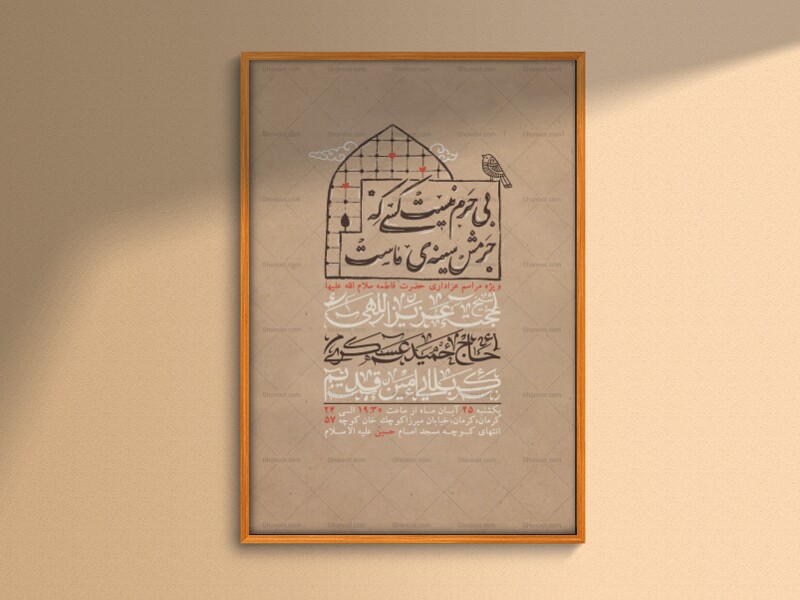 بی حرم نیست کسی که
حرمش سینه‌ی ماست
ویژه مراسم عزاداری حضرت فاطمه سلام الله علیها
حجت عزیزاللهی
حاج احمید عسکری
کربلایی امین قدیم
یکشنبه ۲۵ آبان ماه از ساعت ۱۹:۳۰ الی ۲۴
کرمان،کرمان،خیابان میرزاکوچک خان کوچه ۵۷
انتهای کوچه مسجد امام حسین علیه الاسلام
Ghonoot.com